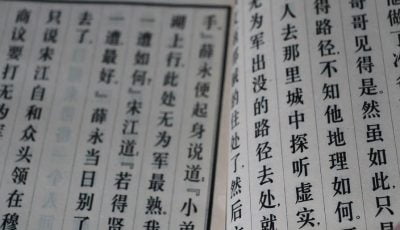 哥哥见得是。然虽如此，只是
得路径，不知他地理如何。可
人去那里城中探听虚实，
无为军出没的路径去处，就
的住处了，然后
手。』薛永便起身说道：『小弟
湖上行，此处无为军最熟。我
一遭如何？』宋江道：『若得贤
一遭最好。』薛永当日别了
去了。
只说宋江自和众头领在穆
商议要打无为军